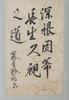 深根固蒂
長生久視
之道